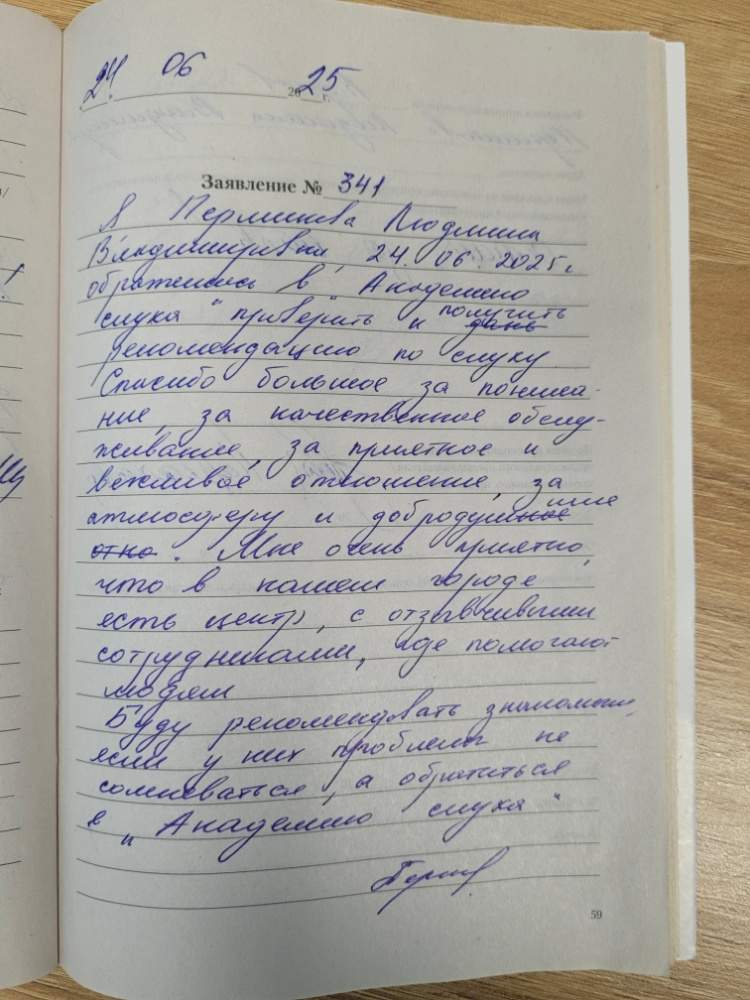 24. 06 2025 г.
Заявление № 341
Я Перминова Людмила
Владимировна 24.06.2025г
обратилась в "Академию
слуха" проверить и получить дань
рекомендацию по слуху
Спасибо большое за понима-
ние, за качественное обслу-
живание, за приятное и
вежливое отношение, за
атмосферу и добродушие
отно. Мне очень приятно,
что в нашем городе
есть центр, с отзывчивыми
сотрудниками, где помогают
людям
Буду рекомендовать знакомым,
если у них проблемы не
сомневаться, а обратиться
в "Академию слуха"
59